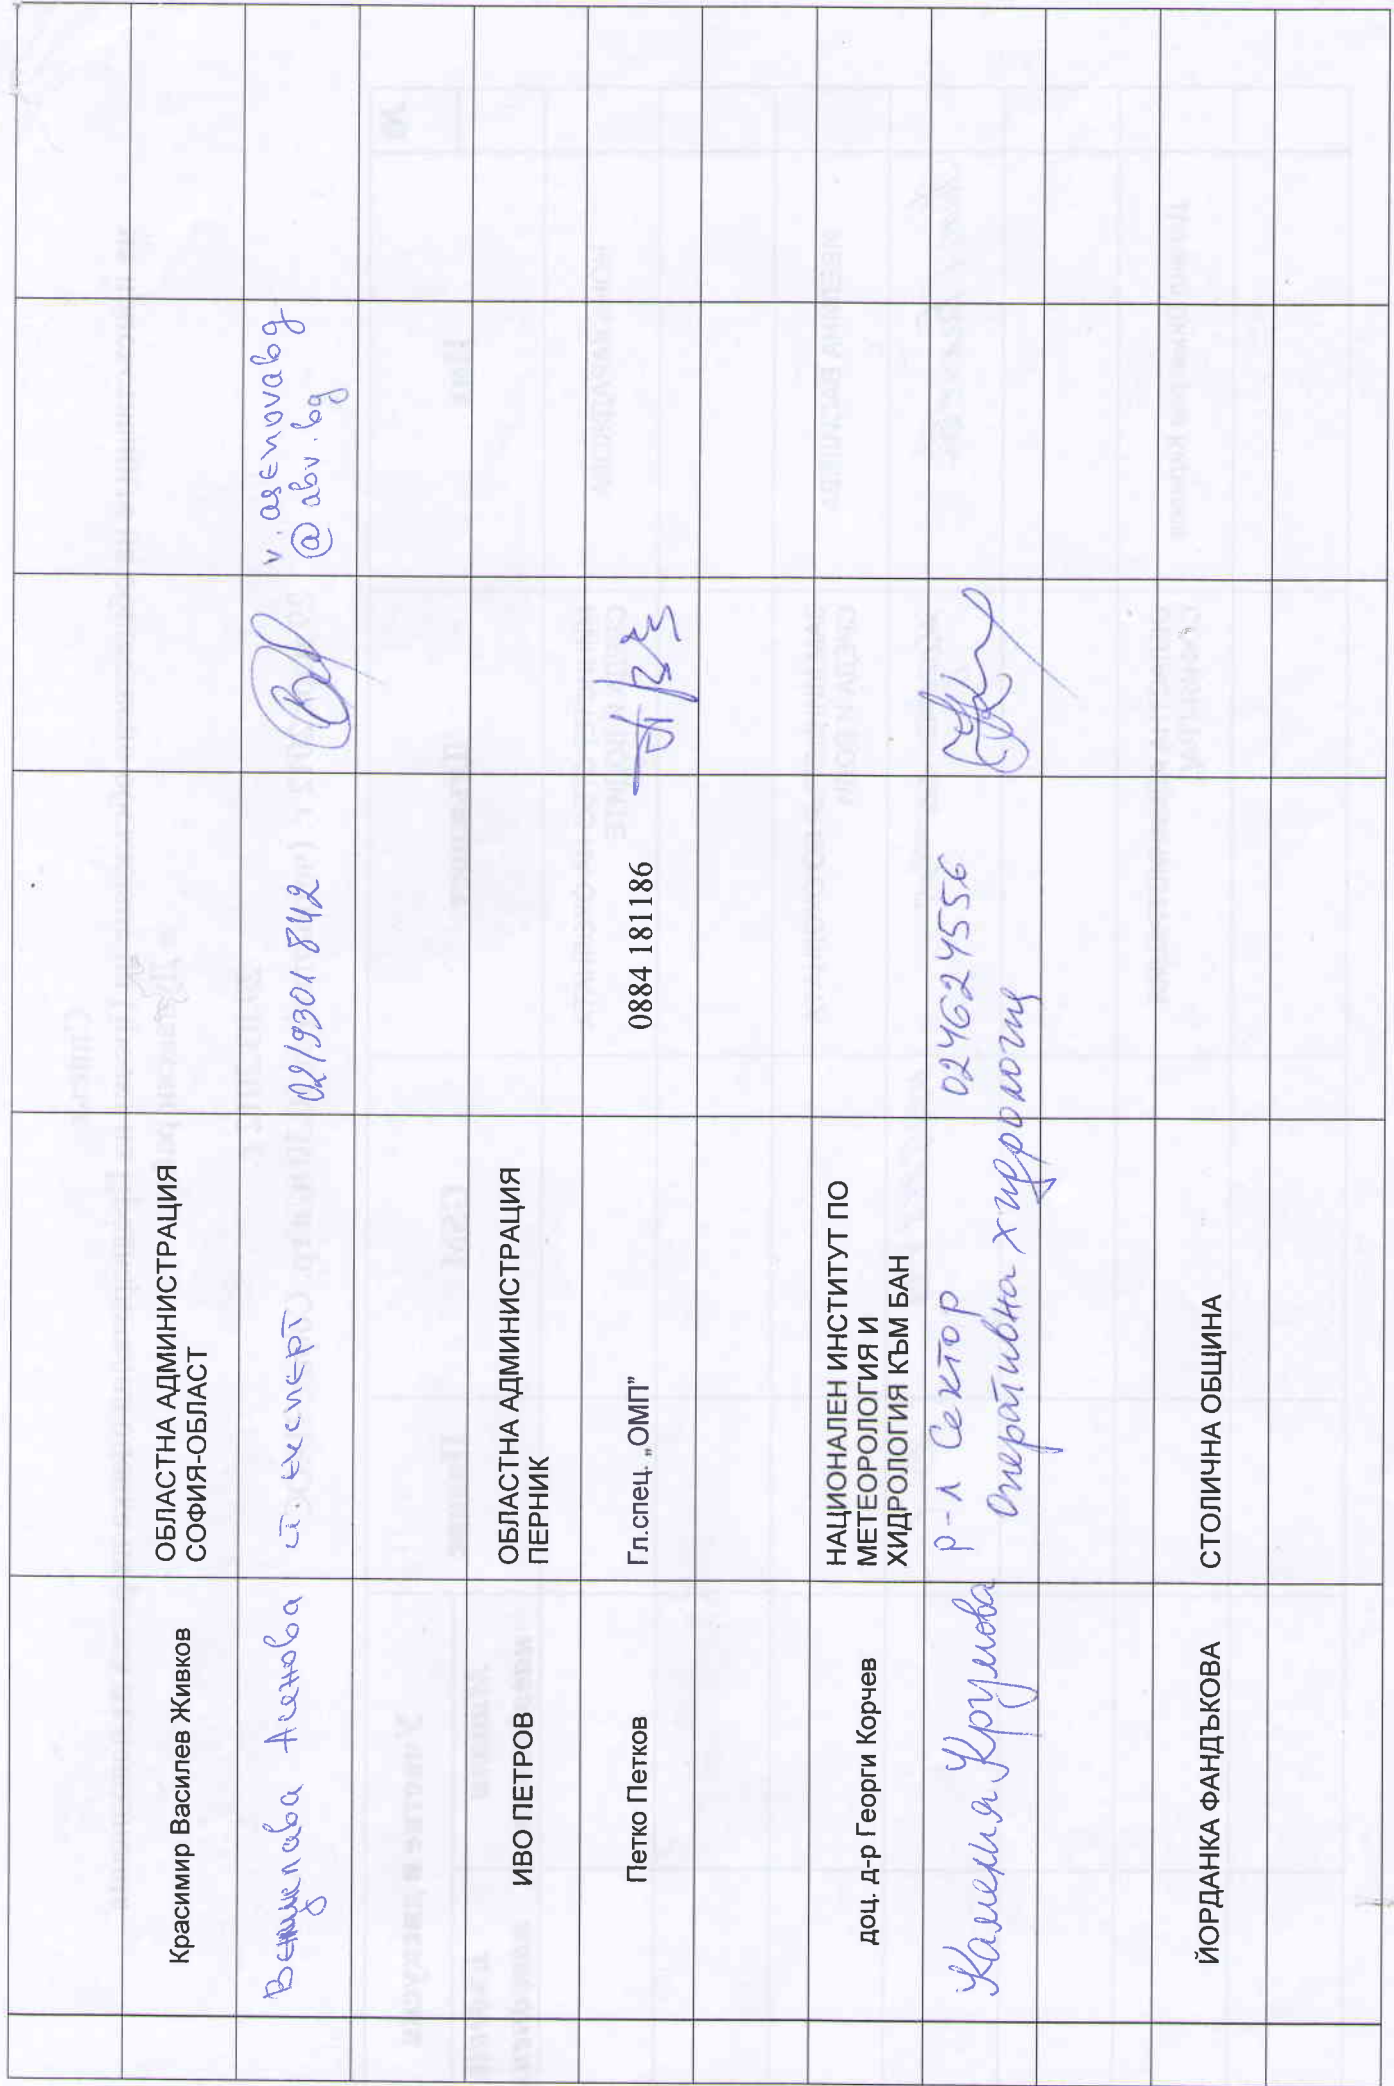 Красимир Василев Живков
ОБЛАСТНА АДМИНИСТРАЦИЯ
СОФИЯ-ОБЛАСТ
Асенова
експерт
02/9301842
v.asenovabg
@abv.bg
ИВО ПЕТРОВ
ОБЛАСТНА АДМИНИСТРАЦИЯ
ПЕРНИК
Петко Петков
Гл.спец. „ОМП”
0884 181186
доц. д-р Георги Корчев
НАЦИОНАЛЕН ИНСТИТУТ ПО
МЕТЕОРОЛОГИЯ И
ХИДРОЛОГИЯ КЪМ БАН
Камелия Крумова
р-л Сектор
оперативна хидрология
024624556
ЙОРДАНКА ФАНДЪКОВА
СТОЛИЧНА ОБЩИНА